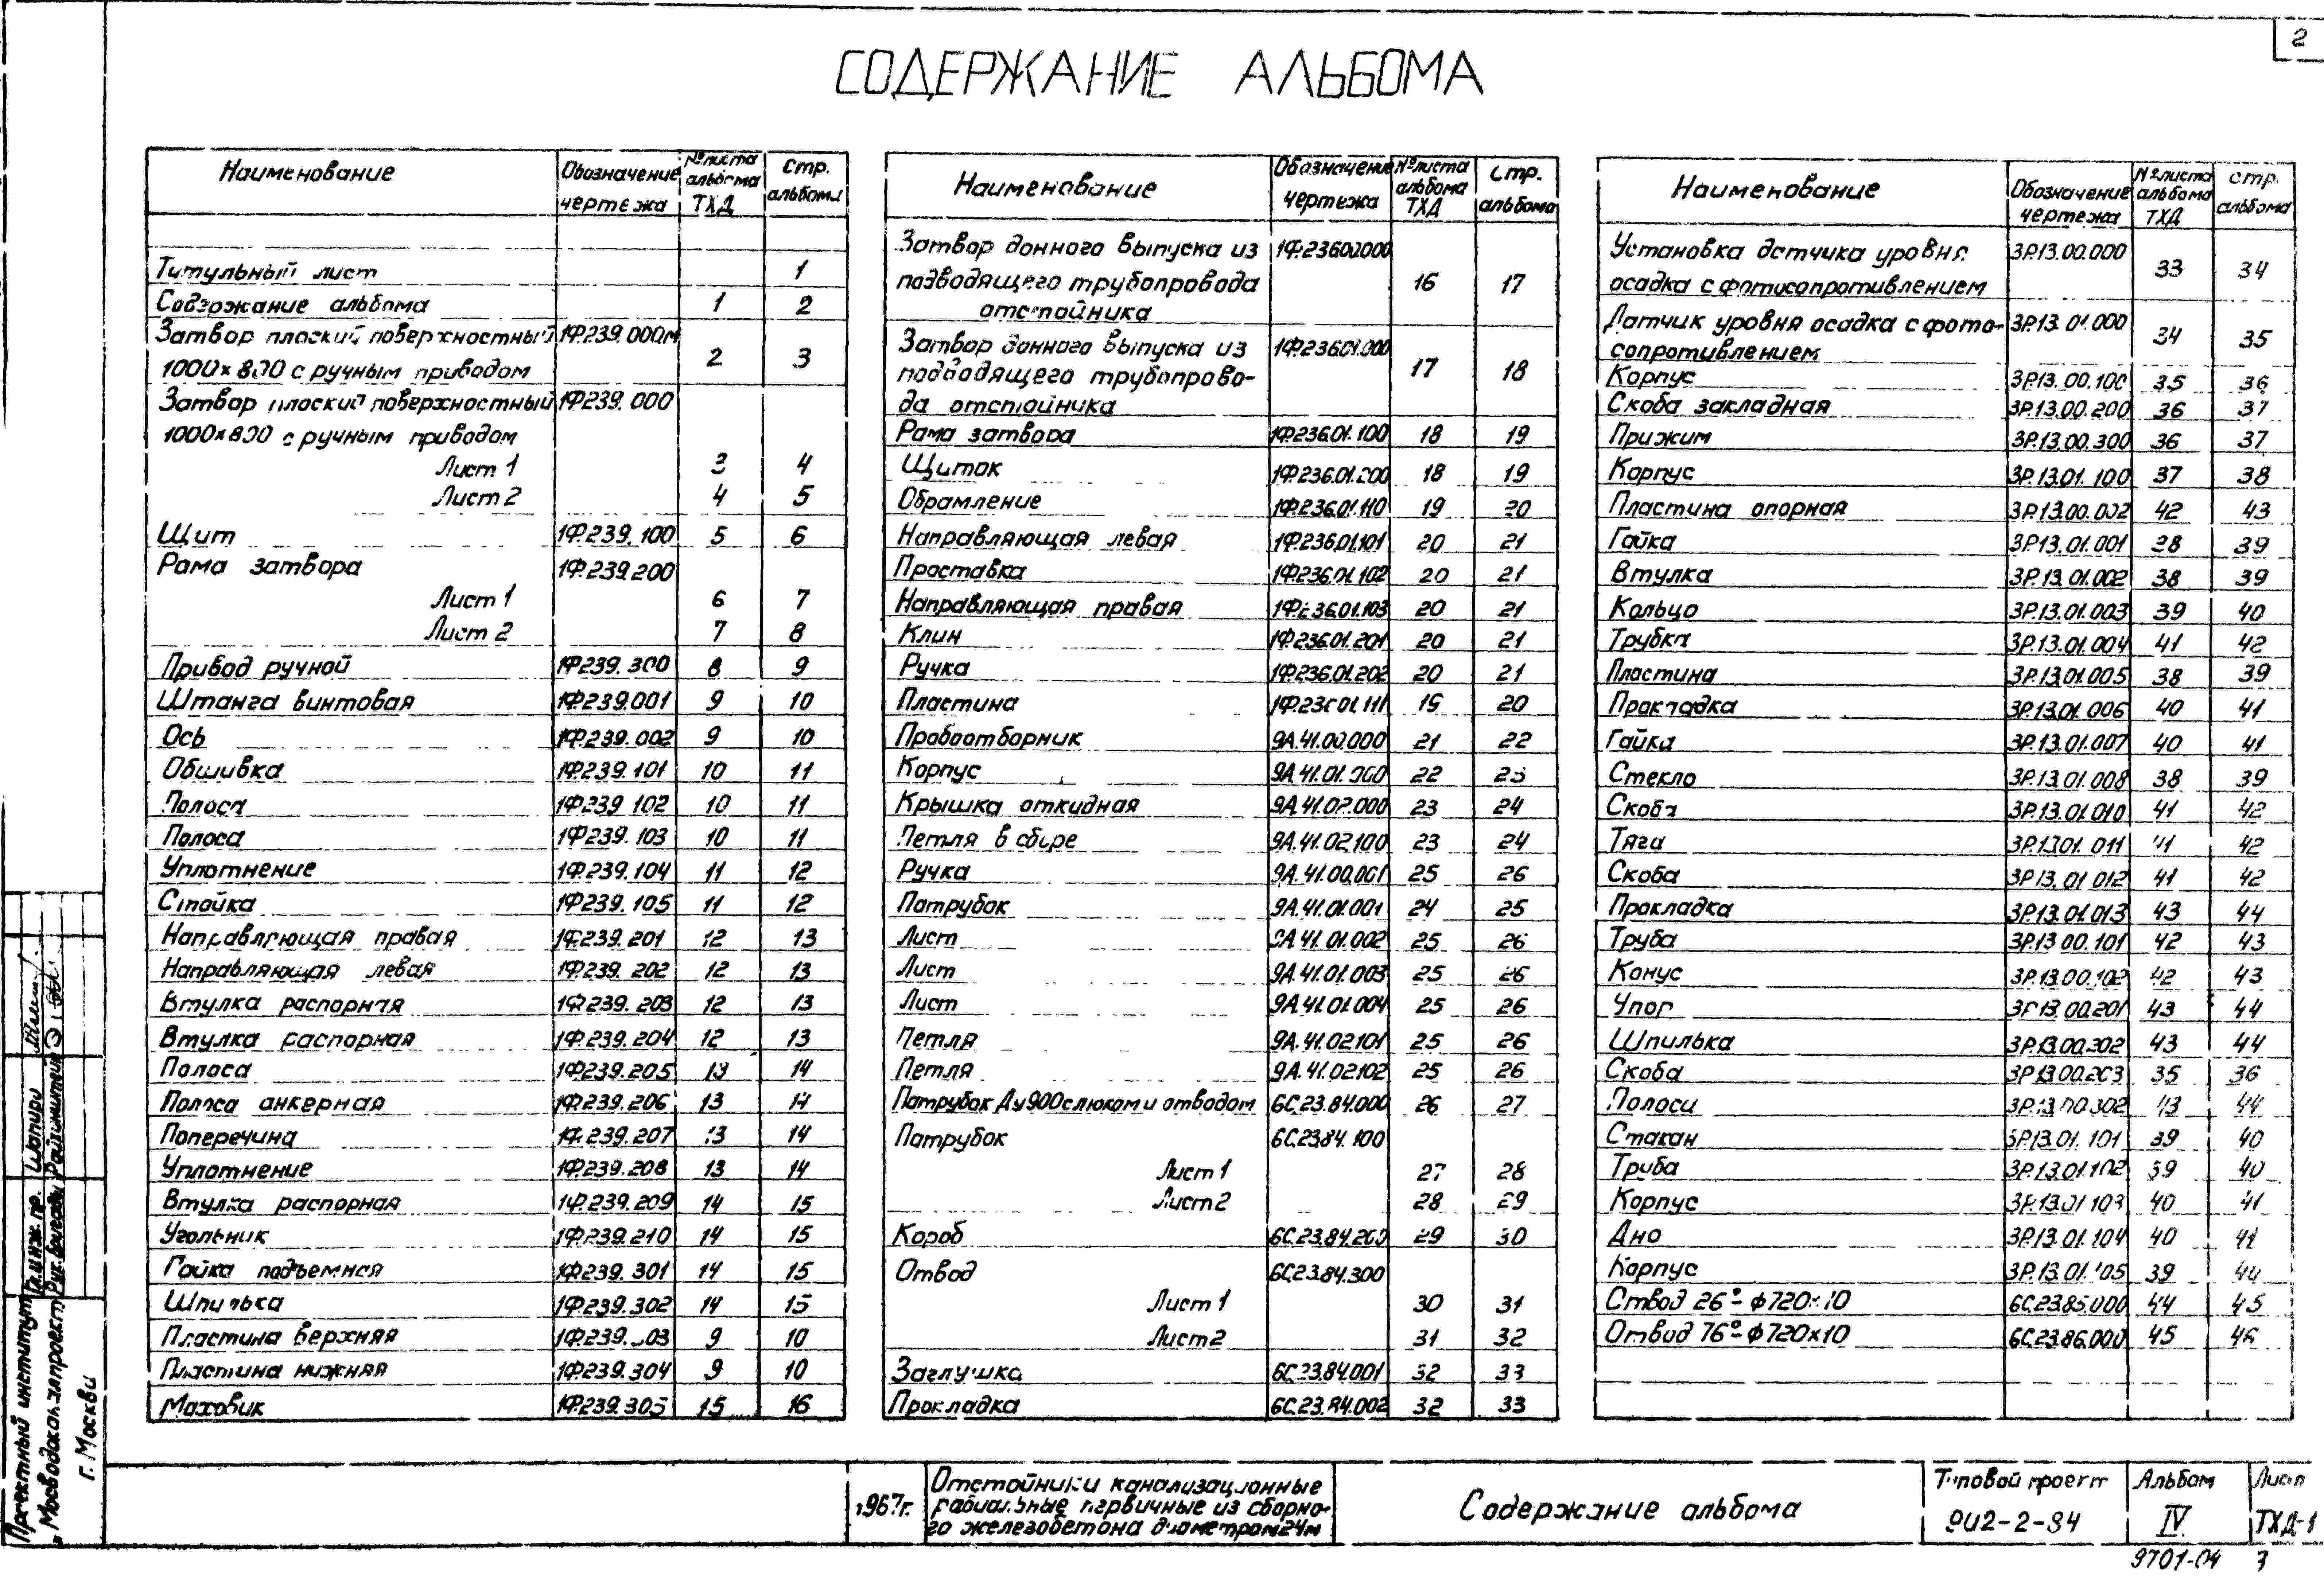 2
СОДЕРЖАНИЕ АЛЬБОМА
Наименование Обозначение чертежа №листа альбома ТХД Стр. альбома
Титульный лист 1
Содержание альбома 1 2
Затвор плоский поверхностный 1Ф239.000М
1000×800 с ручным приводом 2 3
Затвор плоский поверхностный 1Ф239.000
1000×800 с ручным приводом
Лист 1 3 4
Лист 2 4 5
Щит 1Ф.239.100 5 6
Рама затвора 1Ф.239.200
Лист 1 6 7
Лист 2 7 8
Привод ручной 1Ф239.300 8 9
Штанга винтовая 1Ф.239.001 9 10
Ось 1Ф.239.002 9 10
Обшивка 1Ф.239.101 10 11
Полоса 1Ф239 102 10 11
Полоса 1Ф239.103 10 11
Уплотнение 1Ф.239.104 11 12
Стойка 1Ф239.105 11 12
Направляющая правая 1Ф.239.201 12 13
Направляющая левая 1Ф.239.202 12 13
Втулка распорная 1Ф.239.203 12 13
Втулка распорная 1Ф.239.204 12 13
Полоса 1Ф239.205 13 14
Полоса анкерная 1Ф.239.206 13 14
Поперечина 1Ф.239.207 13 14
Уплотнение 1Ф.239.208 13 14
Втулка распорная 1Ф.239.209 14 15
Угольник 1Ф.239.210 14 15
Гайка подъемная 1Ф239.301 14 15
Шпилька 1Ф.239.302 14 15
Пластина верхняя 1Ф239.303 9 10
Пластина нижняя 1Ф239.304 9 10
Маховик 1Ф.239.305 15 16
Наименование Обозначение чертежа №листа альбома ТХД Стр. альбома
Затвор донного выпуска из 1Ф.236.00.000
подводящего трубопровода 16 17
отстойника
Затвор донного выпуска из 1Ф.236.01.000
подводящего трубопрово- 17 18
да отстойника
Рама затвора 1Ф.236.01.100 18 19
Щиток 1Ф.236.01.200 18 19
Обрамление 1Ф.236.01.110 19 20
Направляющая левая 1Ф.236.01.101 20 21
Проставка 1Ф.236.01.102 20 21
Направляющая правая 1Ф.236.01.103 20 21
Клин 1Ф.236.01.201 20 21
Ручка 1Ф.236.01.202 20 21
Пластина 1Ф.236.01.111 19 20
Пробоотборник 9А.41.00.000 21 22
Корпус 9А.41.01.000 22 23
Крышка откидная 9А.41.02.000 23 24
Петля в сборе 9А.41.02.100 23 24
Ручка 9А.41.00.001 25 26
Патрубок 9А.41.01.001 24 25
Лист 9А.41.01.002 25 26
Лист 9А.41.01.003 25 26
Лист 9А.41.01.004 25 26
Петля 9А.41.02101 25 26
Петля 9А.41.02102 25 26
Патрубок Ду900 с люком и отводом 6С.23.84.000 26 27
Патрубок 6С.23.84.100
Лист 1 27 28
Лист 2 28 29
Короб 6С.23.84.200 29 30
Отвод 6С.23.84.300
Лист 1 30 31
Лист 2 31 32
Заглушка 6С.23.84.001 32 33
Прокладка 6С.23.84.002 32 33
Наименование Обозначение чертежа №листа альбома ТХД Стр. альбома
Установка датчика уровня 3Р.13.00.000
осадка с фотосопротивлением 33 34
Датчик уровня осадка с фото- 3Р.13.01.000
сопротивлением 34 35
Корпус 3Р.13.00.100 35 36
Скоба закладная 3Р.13.00.200 36 37
Прижим 3Р.13.00.300 36 37
Корпус 3Р.13.01.100 37 38
Пластина опорная 3Р.13.00.002 42 43
Гайка 3Р.13.01.001 38 39
Втулка 3Р.13.01.002 38 39
Кольцо 3Р.13.01.003 39 40
Трубка 3Р.13.01.004 41 42
Пластина 3Р.13.01.005 38 39
Прокладка 3Р.13.01.006 40 41
Гайка 3Р.13.01.007 40 41
Стекло 3Р.13.01.008 38 39
Скоба 3Р.13.01.010 41 42
Тяга 3Р.13.01.011 41 42
Скоба 3Р.13.01 012 41 42
Прокладка 3Р.13.01.013 43 44
Труба 3Р.13 00.101 42 43
Конус 3Р.13.00.102 42 43
Упор 3Р.13.00.201 43 44
Шпилька 3Р.13.00.302 43 44
Скоба 3Р.13.00.203 35 36
Полоса 3Р.13.00.302 43 44
Стакан 3Р.13.01.101 39 40
Труба 3Р.13.01.102 39 40
Корпус 3Р.13.01 103 40 41
Дно 3Р.13.01.104 40 41
Корпус 3Р.13.01.105 39 40
Отвод 26°-ф720×10 6С.23.85.000 44 45
Отвод 76°-ф720×10 6С.23.86.000 45 46
Проектный институт
"Мосводоканалпроект"
г. Москва
Гл. инж. пр. Шапиро
Рук. бригады
1967г.
Отстойники канализационные
радиальные первичные из сборно-
го железобетона диаметром 24м
Содержание альбома
Типовой проект
902-2-84
Альбом
IV
Лист
ТХД-1
9701-04 3